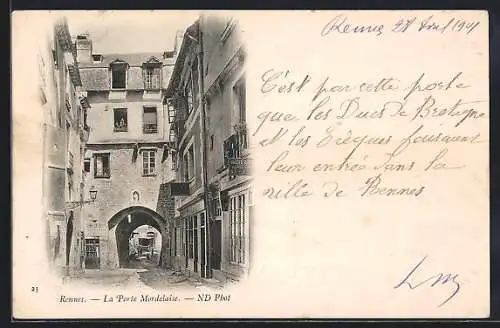 Rennes 27 Avril 1901
C'est par cette porte
que les Ducs de Bretagne
et les Evêques faisaient
leur entrée dans la
ville de Rennes
23
Rennes. — La Porte Mordelaise. — ND Phot